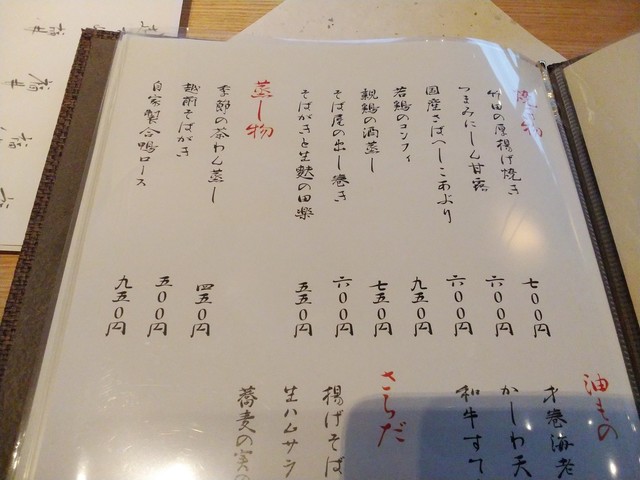 焼き物
竹田の厚揚げ焼き 七00円
つまみにしん甘露 六00円
国産さばへしこあぶり 六00円
若鶏のコンフィ 九五0円
親鶏の酒蒸し 七五0円
そば屋の出し巻き 六00円
そばがきと生麩の田楽 五五0円
蒸し物
季節の茶わん蒸し 四五0円
越前そばがき 五00円
自家製合鴨ロース 九五0円
油もの
才巻海老
かしわ天
和牛すて
さらだ
揚げそば
生ハムサラ
蕎麦の実の